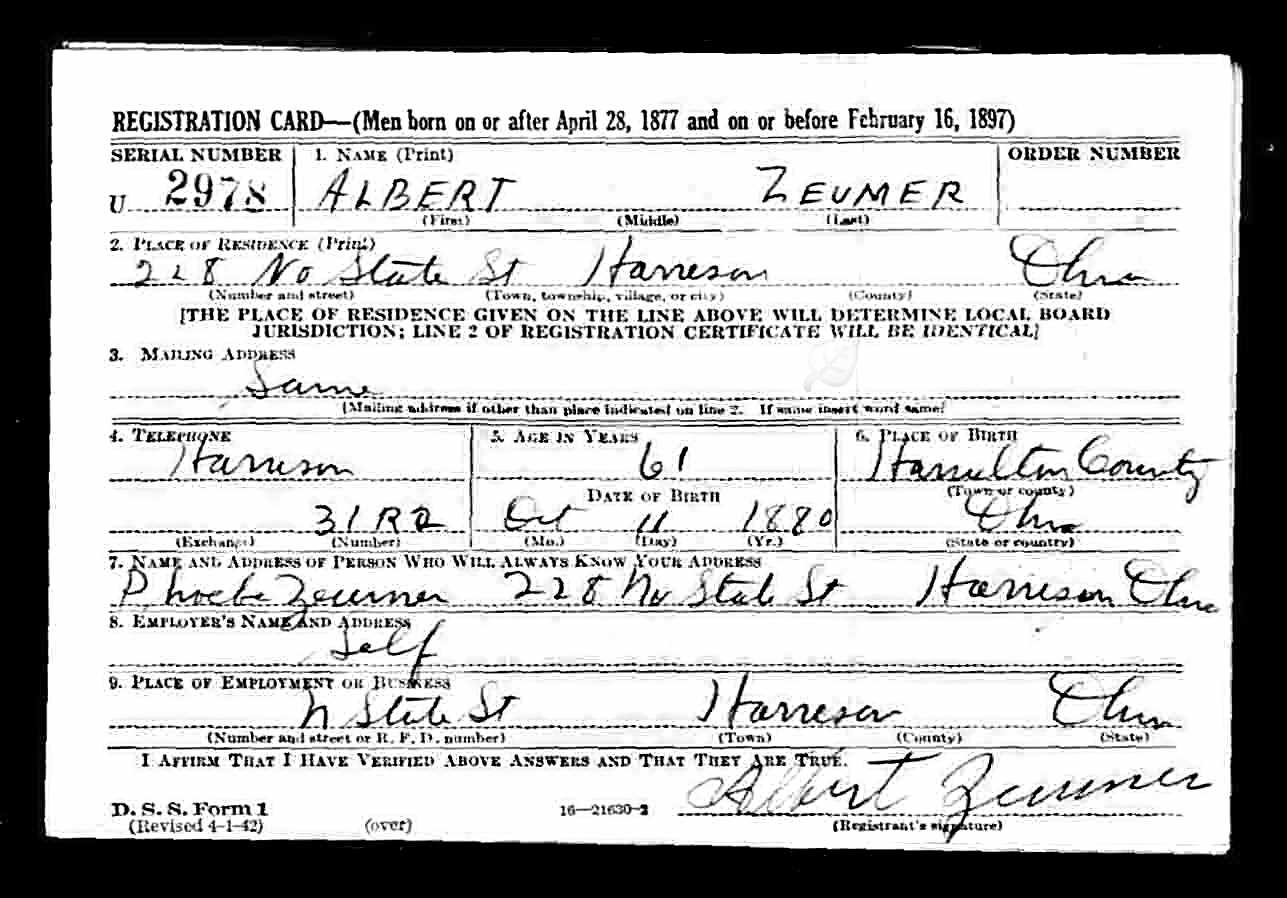 REGISTRATION CARD—(Men born on or after April 28, 1877 and on or before February 16, 1897)
SERIAL NUMBER 1. NAME (Print) ORDER NUMBER
U 2978 ALBERT ZEUMER
(First) (Middle) (Last)
2. PLACE OF RESIDENCE (Print)
228 No State St Harrison Ohio
(Number and street) (Town, township, village, or city) (County) (State)
[THE PLACE OF RESIDENCE GIVEN ON THE LINE ABOVE WILL DETERMINE LOCAL BOARD
JURISDICTION; LINE 2 OF REGISTRATION CERTIFICATE WILL BE IDENTICAL]
3. MAILING ADDRESS
Same
[Mailing address if other than place indicated on line 2. If same insert word same]
4. TELEPHONE 5. AGE IN YEARS 6. PLACE OF BIRTH
Harrison 61 Hamilton County
DATE OF BIRTH (Town or county)
31R2 Oct 11 1880 Ohio
(Exchange) (Number) (Mo.) (Day) (Yr.) (State or country)
7. NAME AND ADDRESS OF PERSON WHO WILL ALWAYS KNOW YOUR ADDRESS
Phoebe Zeumer 228 No State St Harrison Ohio
8. EMPLOYER'S NAME AND ADDRESS
Self
9. PLACE OF EMPLOYMENT OR BUSINESS
N State St Harrison Ohio
(Number and street or R. F. D. number) (Town) (County) (State)
I AFFIRM THAT I HAVE VERIFIED ABOVE ANSWERS AND THAT THEY ARE TRUE.
Albert Zeumer
D. S. S. Form 1 16—21630-2
(Revised 4-1-42) (over) (Registrant's signature)